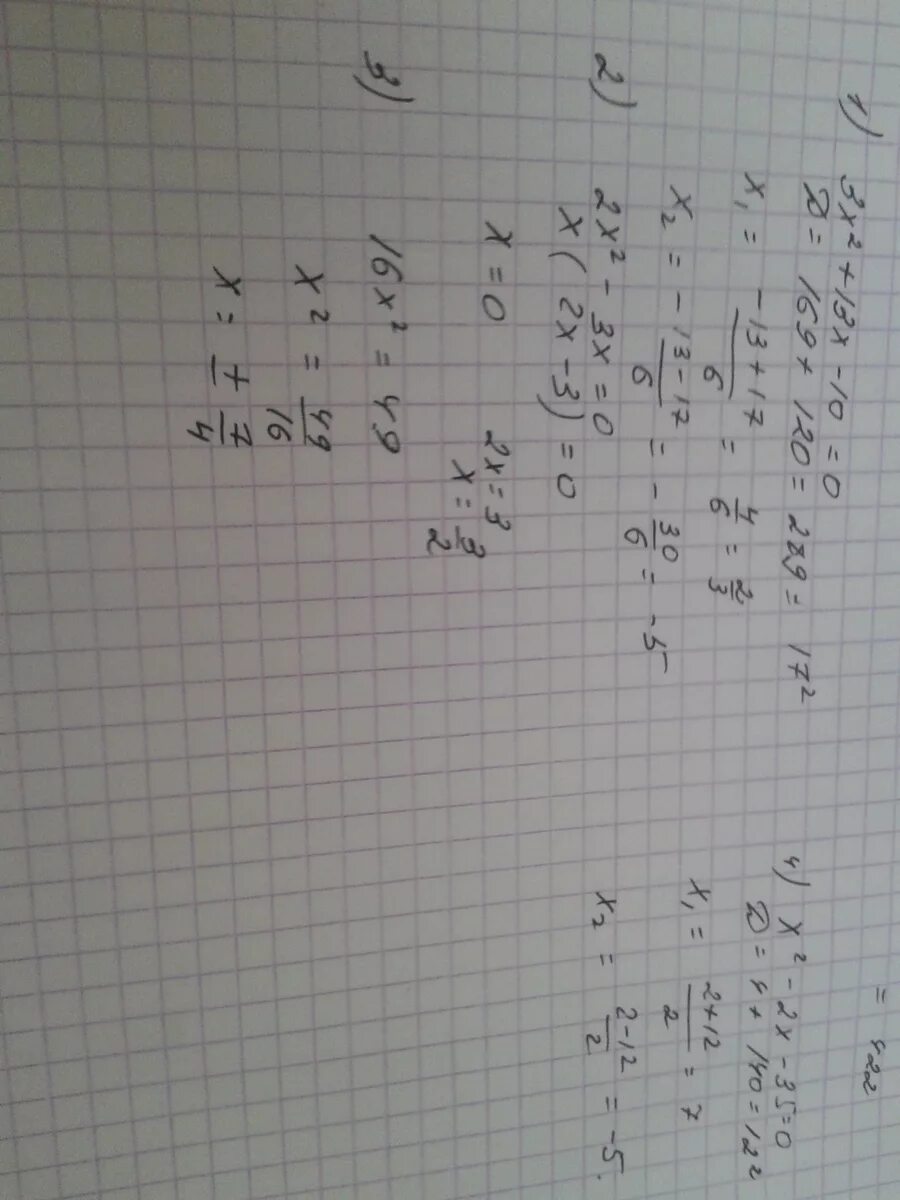 1) 3x² + 13x - 10 = 0
D = 169 + 120 = 289 = 17²
x₁ = -13+17/6 = 4/6 = 2/3
x₂ = -13-17/6 = -30/6 = -5
2) 2x² - 3x = 0
x(2x-3) = 0
x = 0 2x = 3
x = 3/2
3) 16x² = 49
x² = 49/16
x = ± 7/4
4) x² - 2x - 35 = 0
D = 4 + 140 = 12²
x₁ = 2+12/2 = 7
x₂ = 2-12/2 = -5.